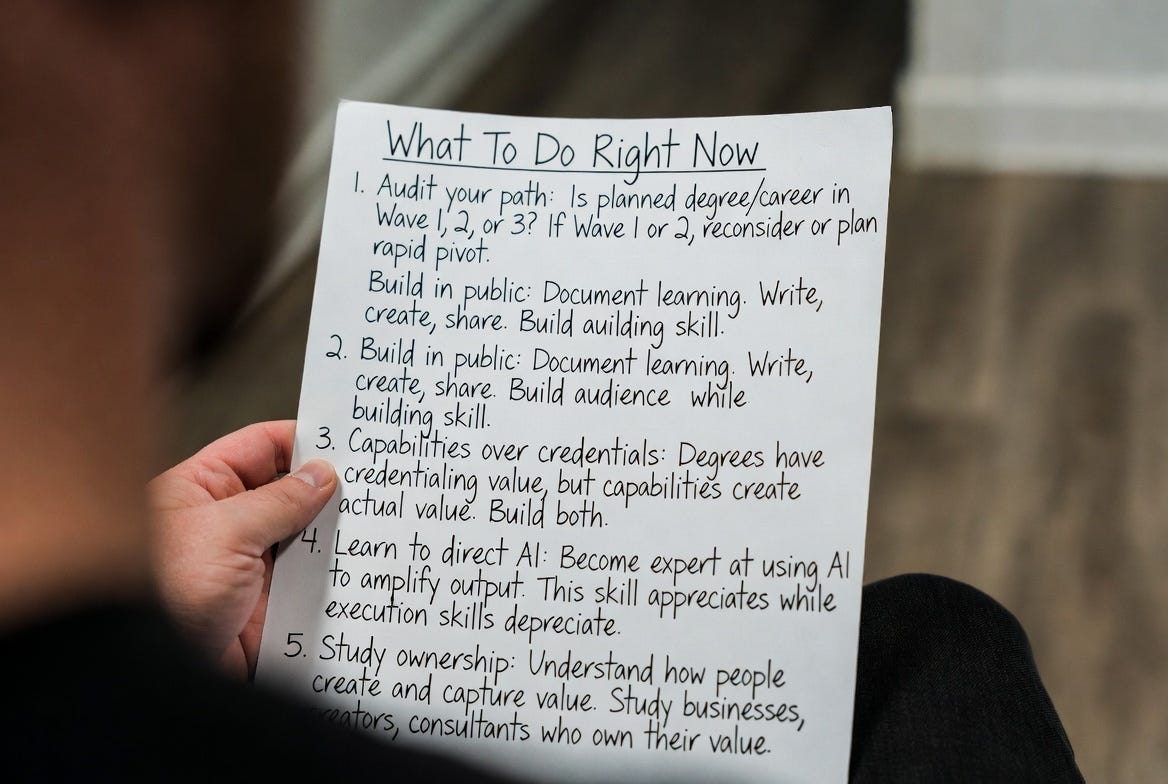 What To Do Right Now
1. Audit your path: Is planned degree/career in
Wave 1, 2, or 3? If Wave 1 or 2, reconsider or plan
rapid pivot.
Build in public: Document learning. Write,
create, share. Build auilding skill.
2. Build in public: Document learning. Write,
create, share. Build audience while
building skill.
3. Capabilities over credentials: Degrees have
credentialing value, but capabilities create
actual value. Build both.
4. Learn to direct AI: Become expert at using AI
to amplify output. This skill appreciates while
execution skills depreciate.
5. Study ownership: Understand how people
create and capture value. Study businesses,
creators, consultants who own their value.